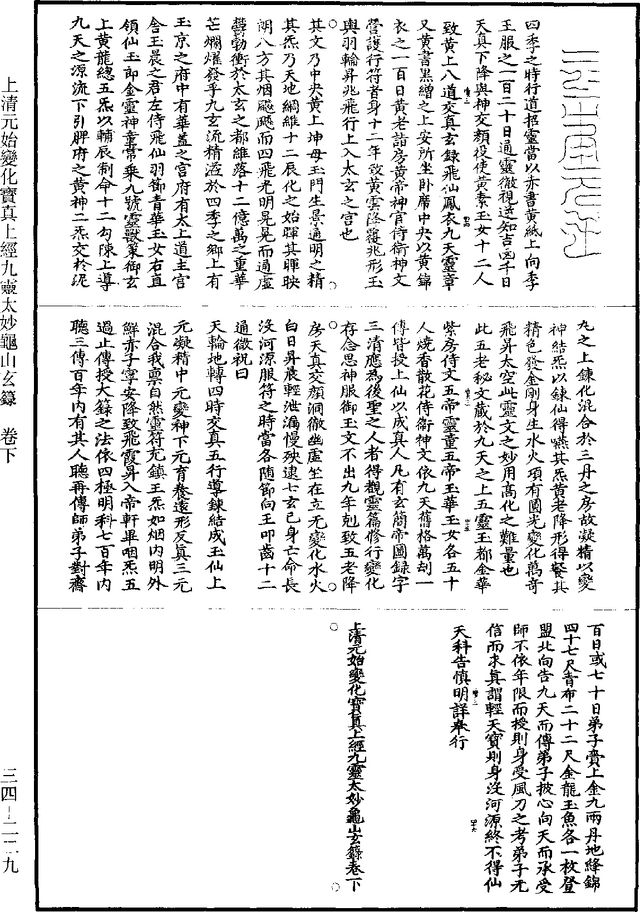 四季之時行道招靈當以赤書黃紙上向季
王服之一百二十日通靈徹視逆知吉凶千日
天真下降與神交顏役使黃素玉女十二人
致黃上八道交真玄錄飛仙鳳衣九天靈章
又黃書黑繒之上安所坐臥席中央以黃錦
衣之一百日黃老詣房黃帝神官侍衛神文
營護行符者身十二年致黃雲隆覆兆形玉
與羽輪昇兆飛行上入太玄之宮也
其文乃中央黃上坤母玉門生景通明之精
其炁乃天地綱維十二辰化之始暉其暉映
朗八方其烟飈飈而四飛光明晃晃而通虛
鬱勃衝於太玄之都維落十二億萬之重華
芒爛燿發乎九玄流精溢於四季之鄉上有
玉京之府中有華蓋之宮府有太上道主宮
舍玉晨之君左侍飛仙羽御青華玉女右直
領仙玉郎金靈神童常乘九號靈獸策御玄
上黃龍總五炁以輔辰制命十二勾陳上導
九天之源流下引脾府之黃神二炁交於泥
九之上鍊化混合於三丹之房故凝精以變
神結炁以鍊仙得嚥其炁黃老降形得餐其
精色發金剛身生水火項有圓光變化萬奇
飛昇太空此靈文之妙用高化之難量也
此五老秘文藏於九天之上五靈玉都金華
紫房侍文五帝靈童五帝玉華玉女各五十
人燒香散花侍衛神文依九天舊格萬劫一
傳皆授上仙以成真人凡有玄簡帝圖錄字
三清應為後聖之人者得觀靈篇修行變化
存念思神服御玉文不出九年剋致五老降
房天真交顏洞徹幽虛坐在立亡變化水火
白日昇晨輕泄漏慢殃逮七玄己身亡命長
沒河源服符之時當各隨節向王叩齒十二
通微祝曰
天輪地轉四時交真五行導鍊結成玉仙上
元凝精中元變神下元育養遺形反真三元
混合我稟自然靈符充鎮玉炁如烟內明外
鮮赤子寧安降致飛霞昇入帝軒畢咽炁五
過止傳授大錄之法依四極明科七百年內
聽三傳百年內有其人聽再傳師弟子對齋
百日或七十日弟子賷上金九兩丹地絳錦
四十七尺青布二十二尺金龍玉魚各一枚登
盟北向告九天而傳弟子披心向天而承受
師不依年限而授則身受風刀之考弟子无
信而求真謂輕天寶則身沒河源終不得仙
天科告慎明詳奉行
上清元始變化寶真上經九靈太妙龜山玄籙卷下
上清元始變化寶真上經九靈太妙龜山玄籙　卷下
三四－二二九